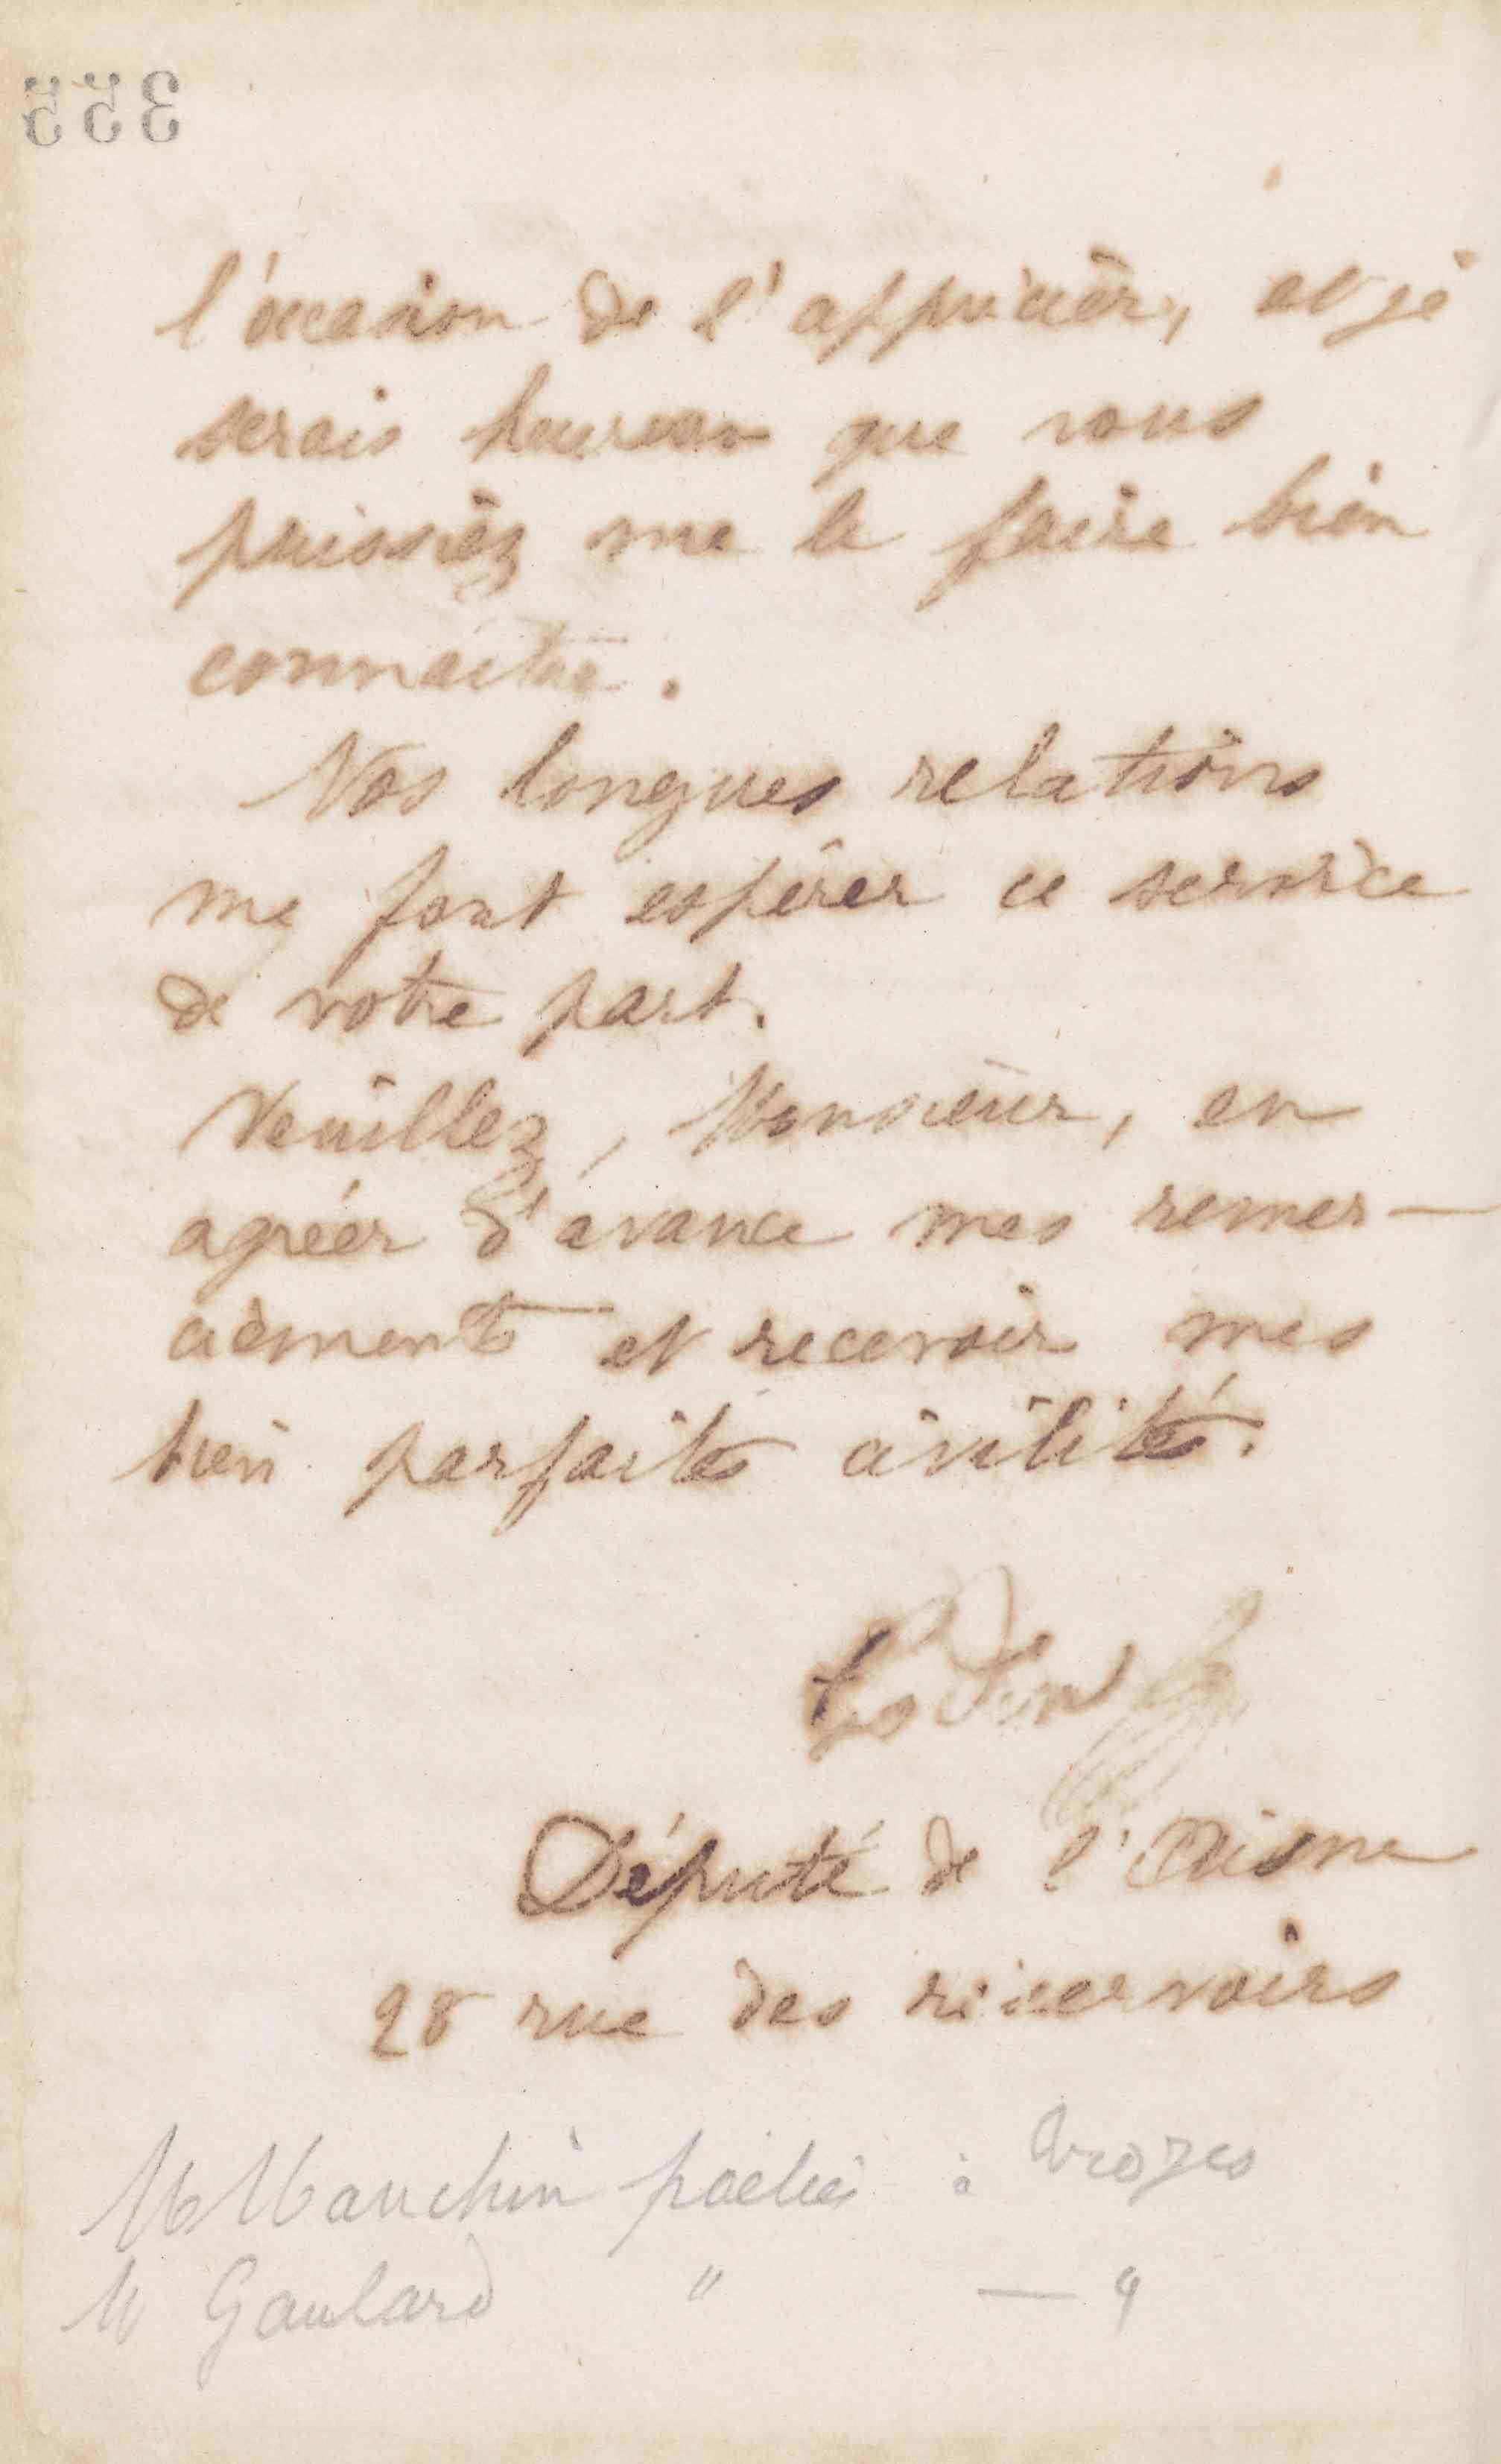 355
l'occasion de l'apprécier, et je
serais heureux que vous
puissiez me le faire bien
connaitre.
Nos longues relations
me font espérer ce service
de votre part.
Veuillez, Monsieur, en
agréer d'avance mes remer-
ciements et recevoir mes
bien parfaites civilités.
Godin
Député de l'Aisne
28 rue des réservoirs
M Mauchin poelier à Troyes
M Gaulard " — "